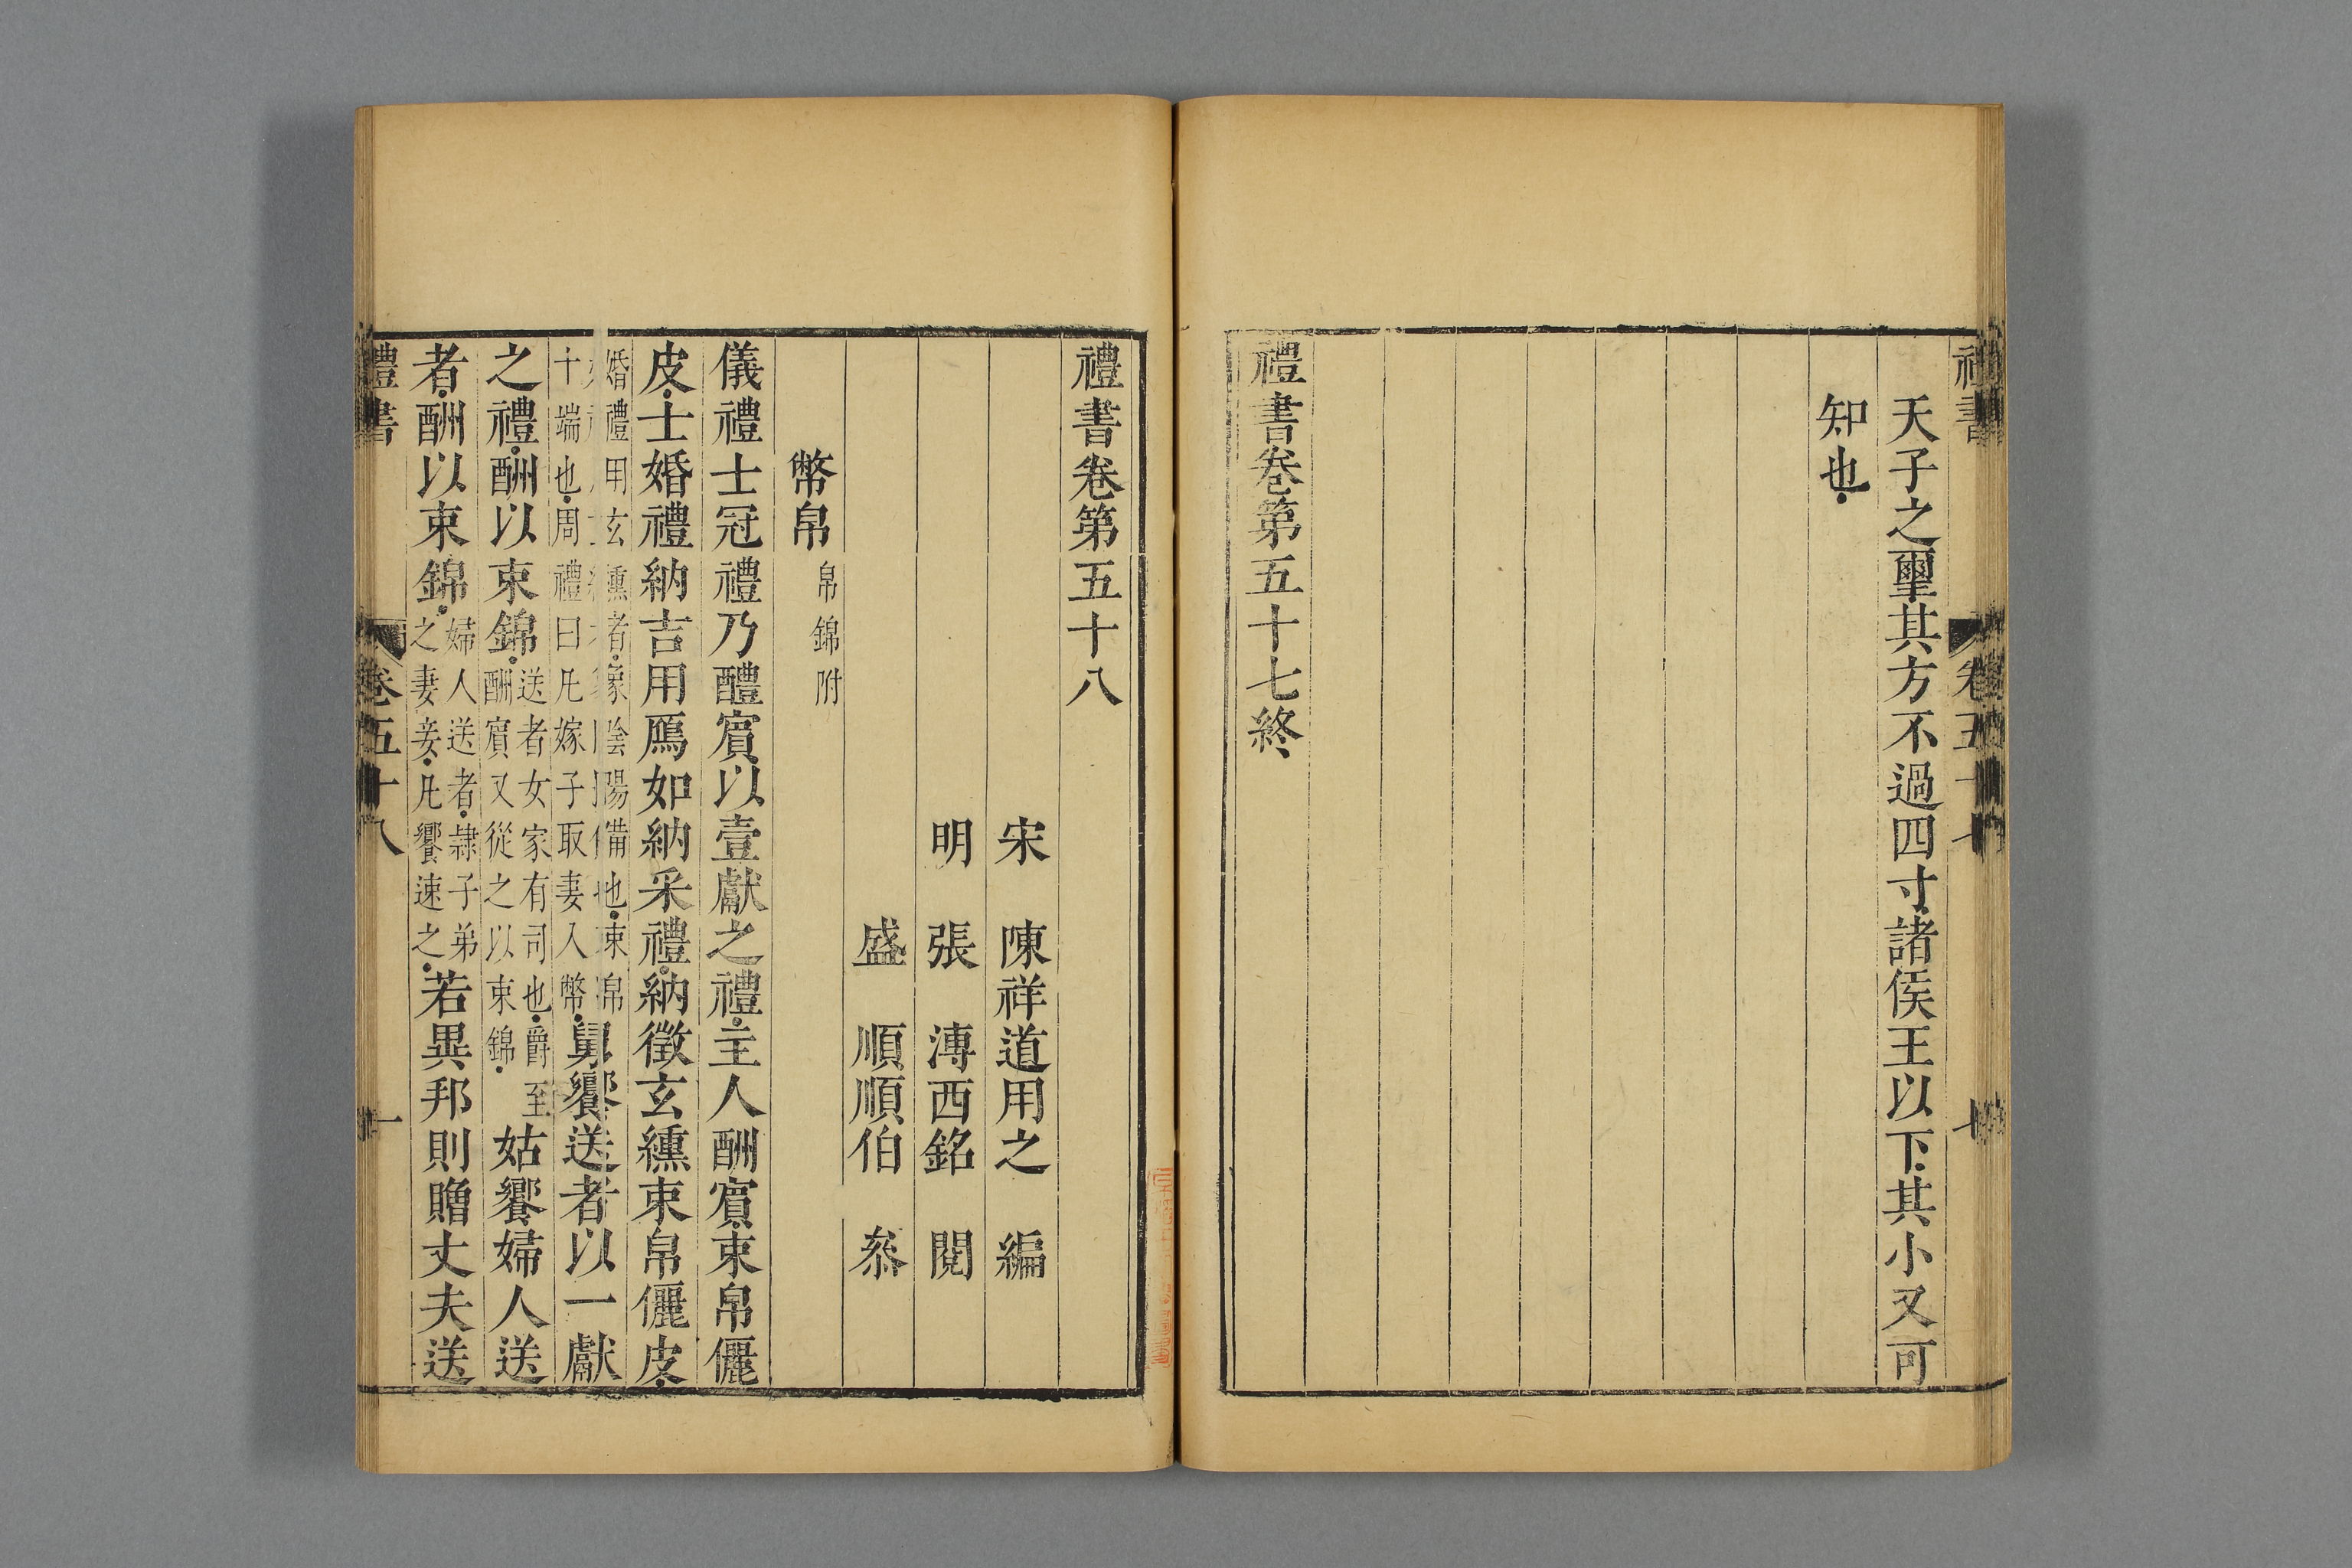 天子之璽其方不過四寸諸侯王以下其小又可
知也
禮書卷第五十七終
禮書卷第五十八
宋 陳祥道用之 編
明 張 溥西銘 閱
盛 順順伯 叅
幣帛 帛錦附
儀禮士冠禮乃醴賔以壹獻之禮主人酬賔束帛儷
皮士婚禮納吉用鴈如納采禮納徵玄纁束帛儷皮
婚禮用玄纁者象陰陽備也束帛
十端也周禮曰凡嫁子取妻入幣
舅饗送者以一獻
之禮酬以束錦
送者女家有司也爵至
酬賔又從之以束錦
姑饗婦人送
者酬以束錦
婦人送者隷子弟
之妻妾凡饗速之
若異邦則贈丈夫送
禮書 卷五十八 一